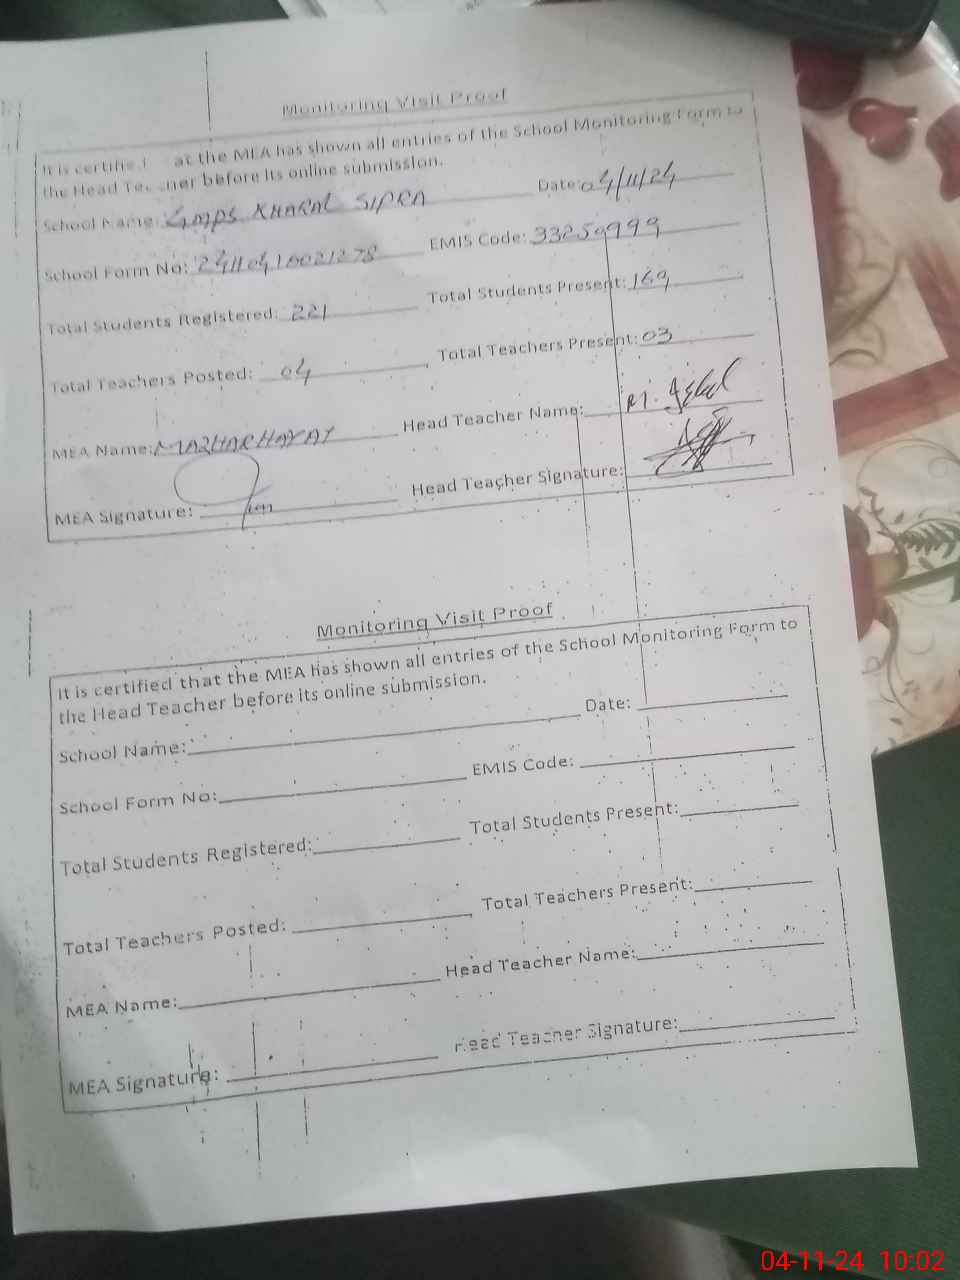 Monitoring Visit Proof
It is certified at the MEA has shown all entries of the School Monitoring Form to
the Head Teacher before its online submission.
School Name: GMPS KHARAL SIPRA Date: 04/11/24
School Form No: 24110410021278 EMIS Code: 33250999
Total Students Registered: 221 Total Students Present: 169
Total Teachers Posted: 04 Total Teachers Present: 03
MEA Name: MAZHAR HAYAT Head Teacher Name: M. Iqbal
MEA Signature: Head Teacher Signature:
Monitoring Visit Proof
It is certified that the MEA has shown all entries of the School Monitoring Form to
the Head Teacher before its online submission.
School Name: Date:
School Form No: EMIS Code:
Total Students Registered: Total Students Present:
Total Teachers Posted: Total Teachers Present:
MEA Name: Head Teacher Name:
MEA Signature: Head Teacher Signature:
04-11-24 10:02